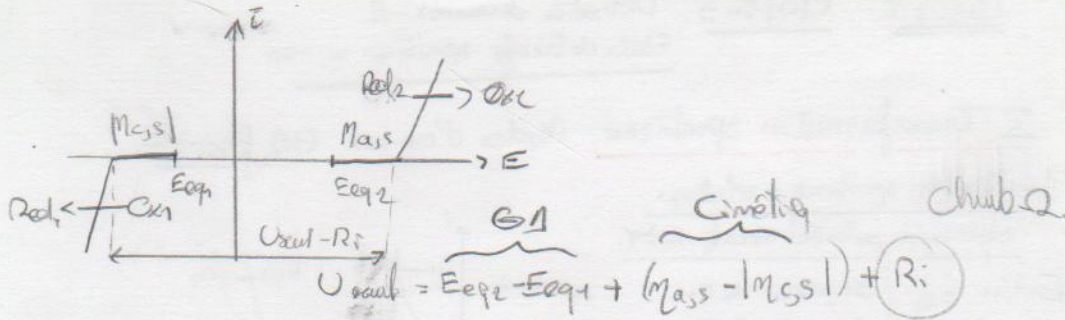 i
Red₂ → Ox₂
|ηc,s| ηa,s
→ E
Eeq1 Eeq2
Red₁ ← Ox1
Useuil - Ri
Useuil = Eeq2 - Eeq1 + (ηa,s - |ηc,s|) + Ri